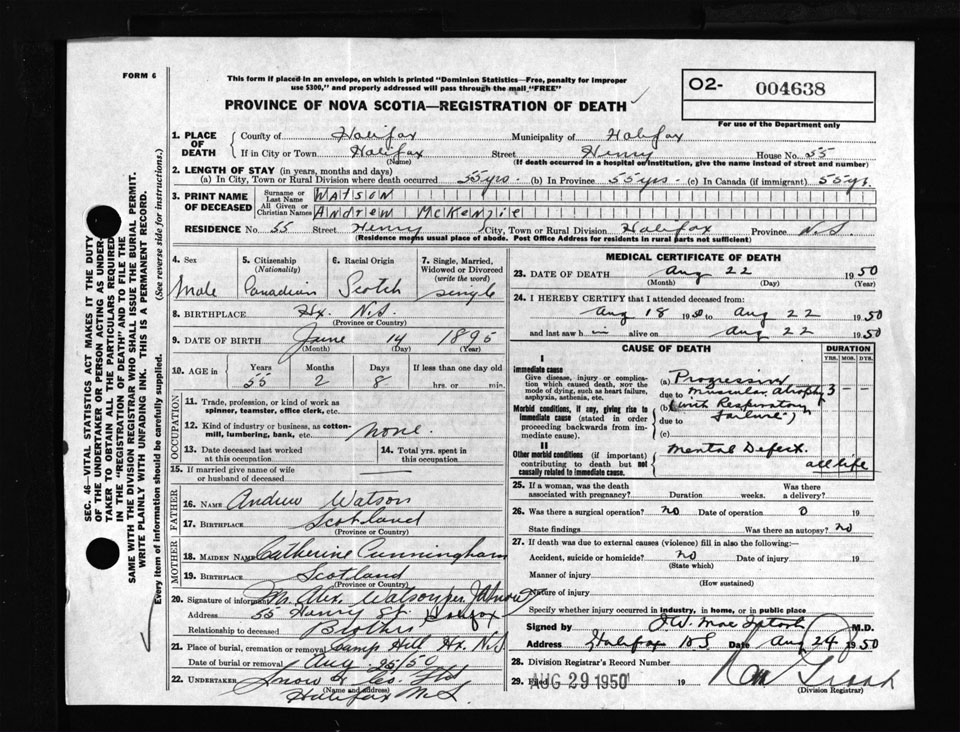 FORM 6
This form if placed in an envelope, on which is printed "Dominion Statistics—Free, penalty for improper
use $300," and properly addressed will pass through the mail "FREE"
PROVINCE OF NOVA SCOTIA—REGISTRATION OF DEATH
O2- 004638
For use of the Department only
SEC. 46—VITAL STATISTICS ACT MAKES IT THE DUTY
OF THE UNDERTAKER OR PERSON ACTING AS UNDER-
TAKER TO OBTAIN ALL THE PARTICULARS REQUIRED
IN THE "REGISTRATION OF DEATH" AND TO FILE THE
SAME WITH THE DIVISION REGISTRAR WHO SHALL ISSUE THE BURIAL PERMIT.
WRITE PLAINLY WITH UNFADING INK. THIS IS A PERMANENT RECORD.
Every item of information should be carefully supplied. (See reverse side for instructions.)
1. PLACE OF DEATH County of Halifax Municipality of Halifax
If in City or Town Halifax Street Henry House No. 55
(Name) (If death occurred in a hospital or institution, give the name instead of street and number)
2. LENGTH OF STAY (in years, months and days)
(a) In City, Town or Rural Division where death occurred 55 yrs. (b) In Province 55 yrs. (c) In Canada (if immigrant) 55 yr.
3. PRINT NAME OF DECEASED Surname or Last Name WATSON
All Given or Christian Names ANDREW McKENZIE
RESIDENCE No. 55 Street Henry City, Town or Rural Division Halifax Province N.S.
(Residence means usual place of abode. Post Office Address for residents in rural parts not sufficient)
4. Sex 5. Citizenship (Nationality) 6. Racial Origin 7. Single, Married, Widowed or Divorced (write the word)
Male Canadian Scotch single
8. BIRTHPLACE Hx. N.S.
(Province or Country)
9. DATE OF BIRTH June 14 1895
(Month) (Day) (Year)
10. AGE in Years Months Days If less than one day old
55 2 8 hrs. or min.
OCCUPATION
11. Trade, profession, or kind of work as spinner, teamster, office clerk, etc.
12. Kind of industry or business, as cotton-mill, lumbering, bank, etc. none.
13. Date deceased last worked at this occupation 14. Total yrs. spent in this occupation
15. If married give name of wife or husband of deceased
FATHER
16. NAME Andrew Watson
17. BIRTHPLACE Scotland
MOTHER
18. MAIDEN NAME Catherine Cunningham
19. BIRTHPLACE Scotland
(Province or Country)
20. Signature of informant Mr. Alex. Watson per
Address 55 Henry St. Halifax
Relationship to deceased Brother
21. Place of burial, cremation or removal Camp Hill Hx. N.S
Date of burial or removal Aug. 25/50
22. UNDERTAKER Snow & Co. Ltd
(Name and address)
Halifax N.S.
MEDICAL CERTIFICATE OF DEATH
23. DATE OF DEATH Aug 22 1950
(Month) (Day) (Year)
24. I HEREBY CERTIFY that I attended deceased from:
Aug 18 1950 to Aug 22 1950
and last saw him alive on Aug 22 1950
CAUSE OF DEATH DURATION
YRS. MOS. DYS.
I
Immediate cause
Give disease, injury or complication which caused death, NOT the mode of dying, such as heart failure, asphyxia, asthenia, etc.
(a) Progressive
due to muscular atrophy 3 — —
Morbid conditions, if any, giving rise to immediate cause (stated in order proceeding backwards from immediate cause).
(b) (with Respiratory
due to failure)
(c)
II
Other morbid conditions (if important) contributing to death but not causally related to immediate cause.
Mental Defect.
all life
25. If a woman, was the death associated with pregnancy? Duration weeks. Was there a delivery?
26. Was there a surgical operation? no Date of operation 0 19
State findings Was there an autopsy? no
27. If death was due to external causes (violence) fill in also the following:—
Accident, suicide or homicide? no Date of injury 19
(State which)
Manner of injury
(How sustained)
Nature of injury
Specify whether injury occurred in industry, in home, or in public place
Signed by W. MacIntosh M.D.
Address Halifax N.S. Date Aug 24 1950
28. Division Registrar's Record Number
29. Filed AUG 29 1950 19
(Division Registrar)